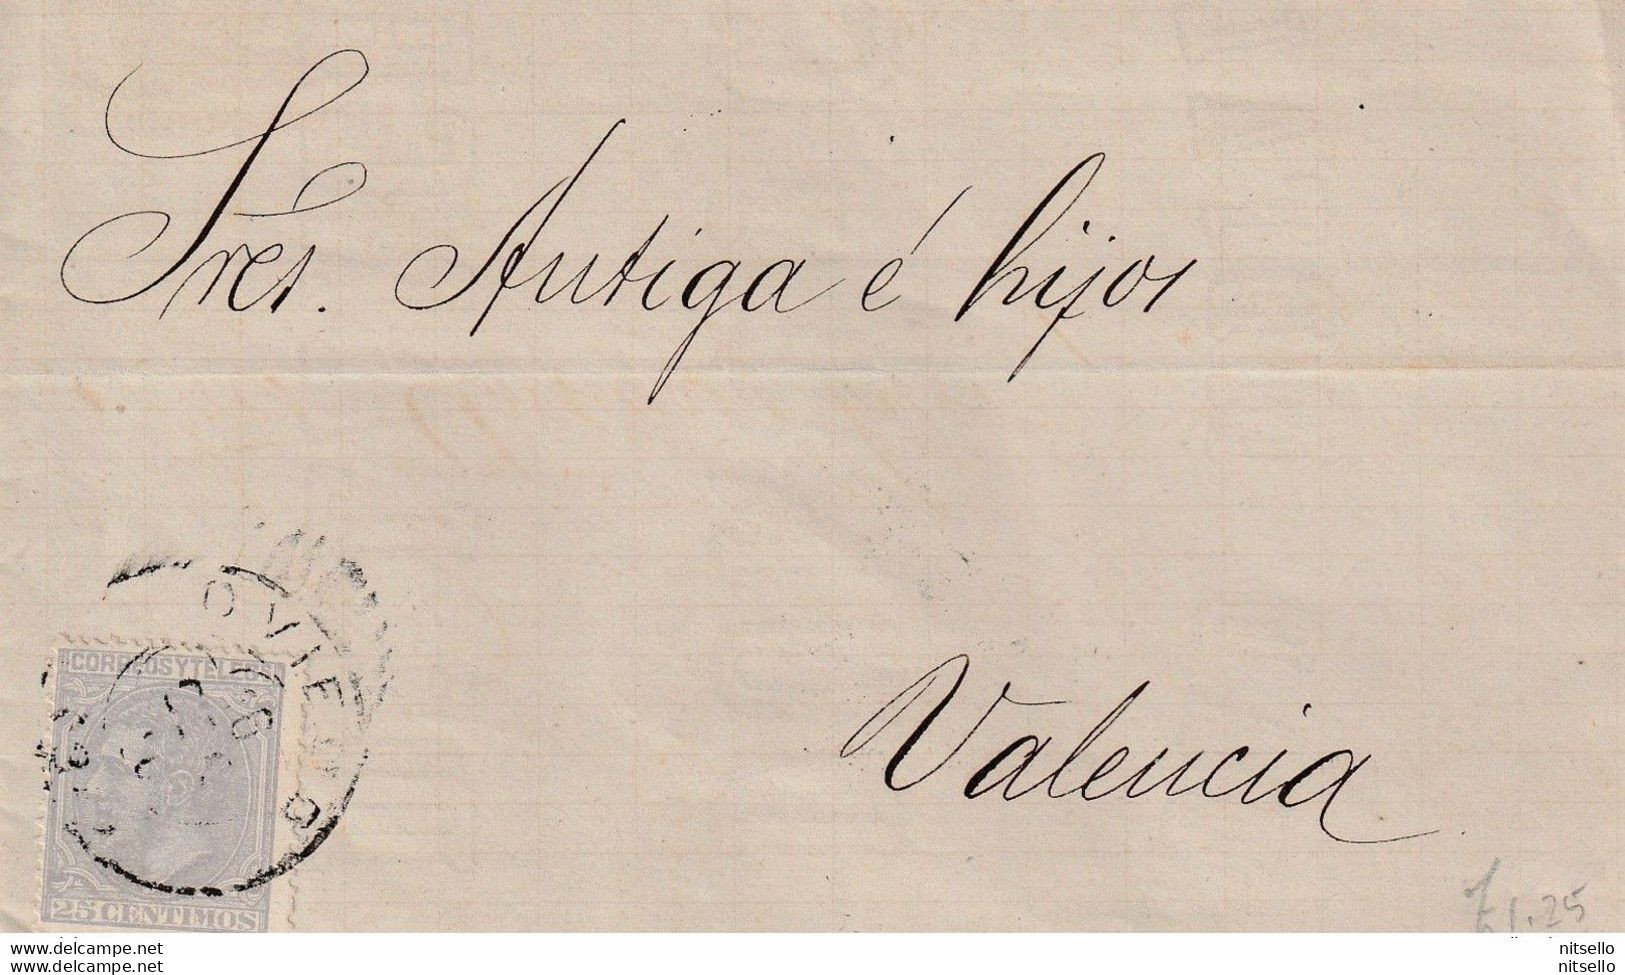 Sres. Antiga é hijos
Valencia
OVIEDO
CORREOS Y TELEGS
25 CENTIMOS
£1.25
www.delcampe.net
www.delcampe.net
nitsello
nitsello